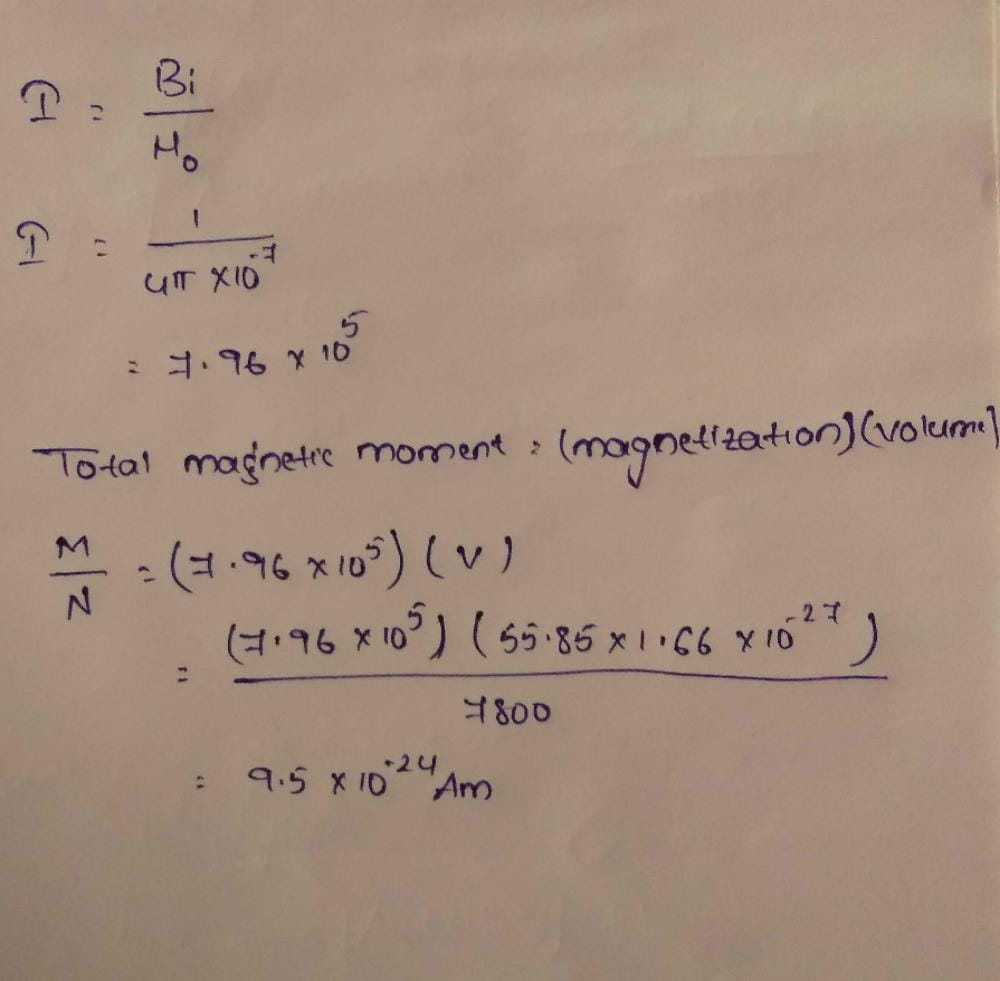 I = Bi / μ₀
I = 1 / 4π × 10⁻⁷
= 7.96 × 10⁵
Total magnetic moment = (magnetization)(volume)
M / N = (7.96 × 10⁵) (V)
= (7.96 × 10⁵) (55.85 × 1.66 × 10⁻²⁷) / 7800
= 9.5 × 10⁻²⁴ Am